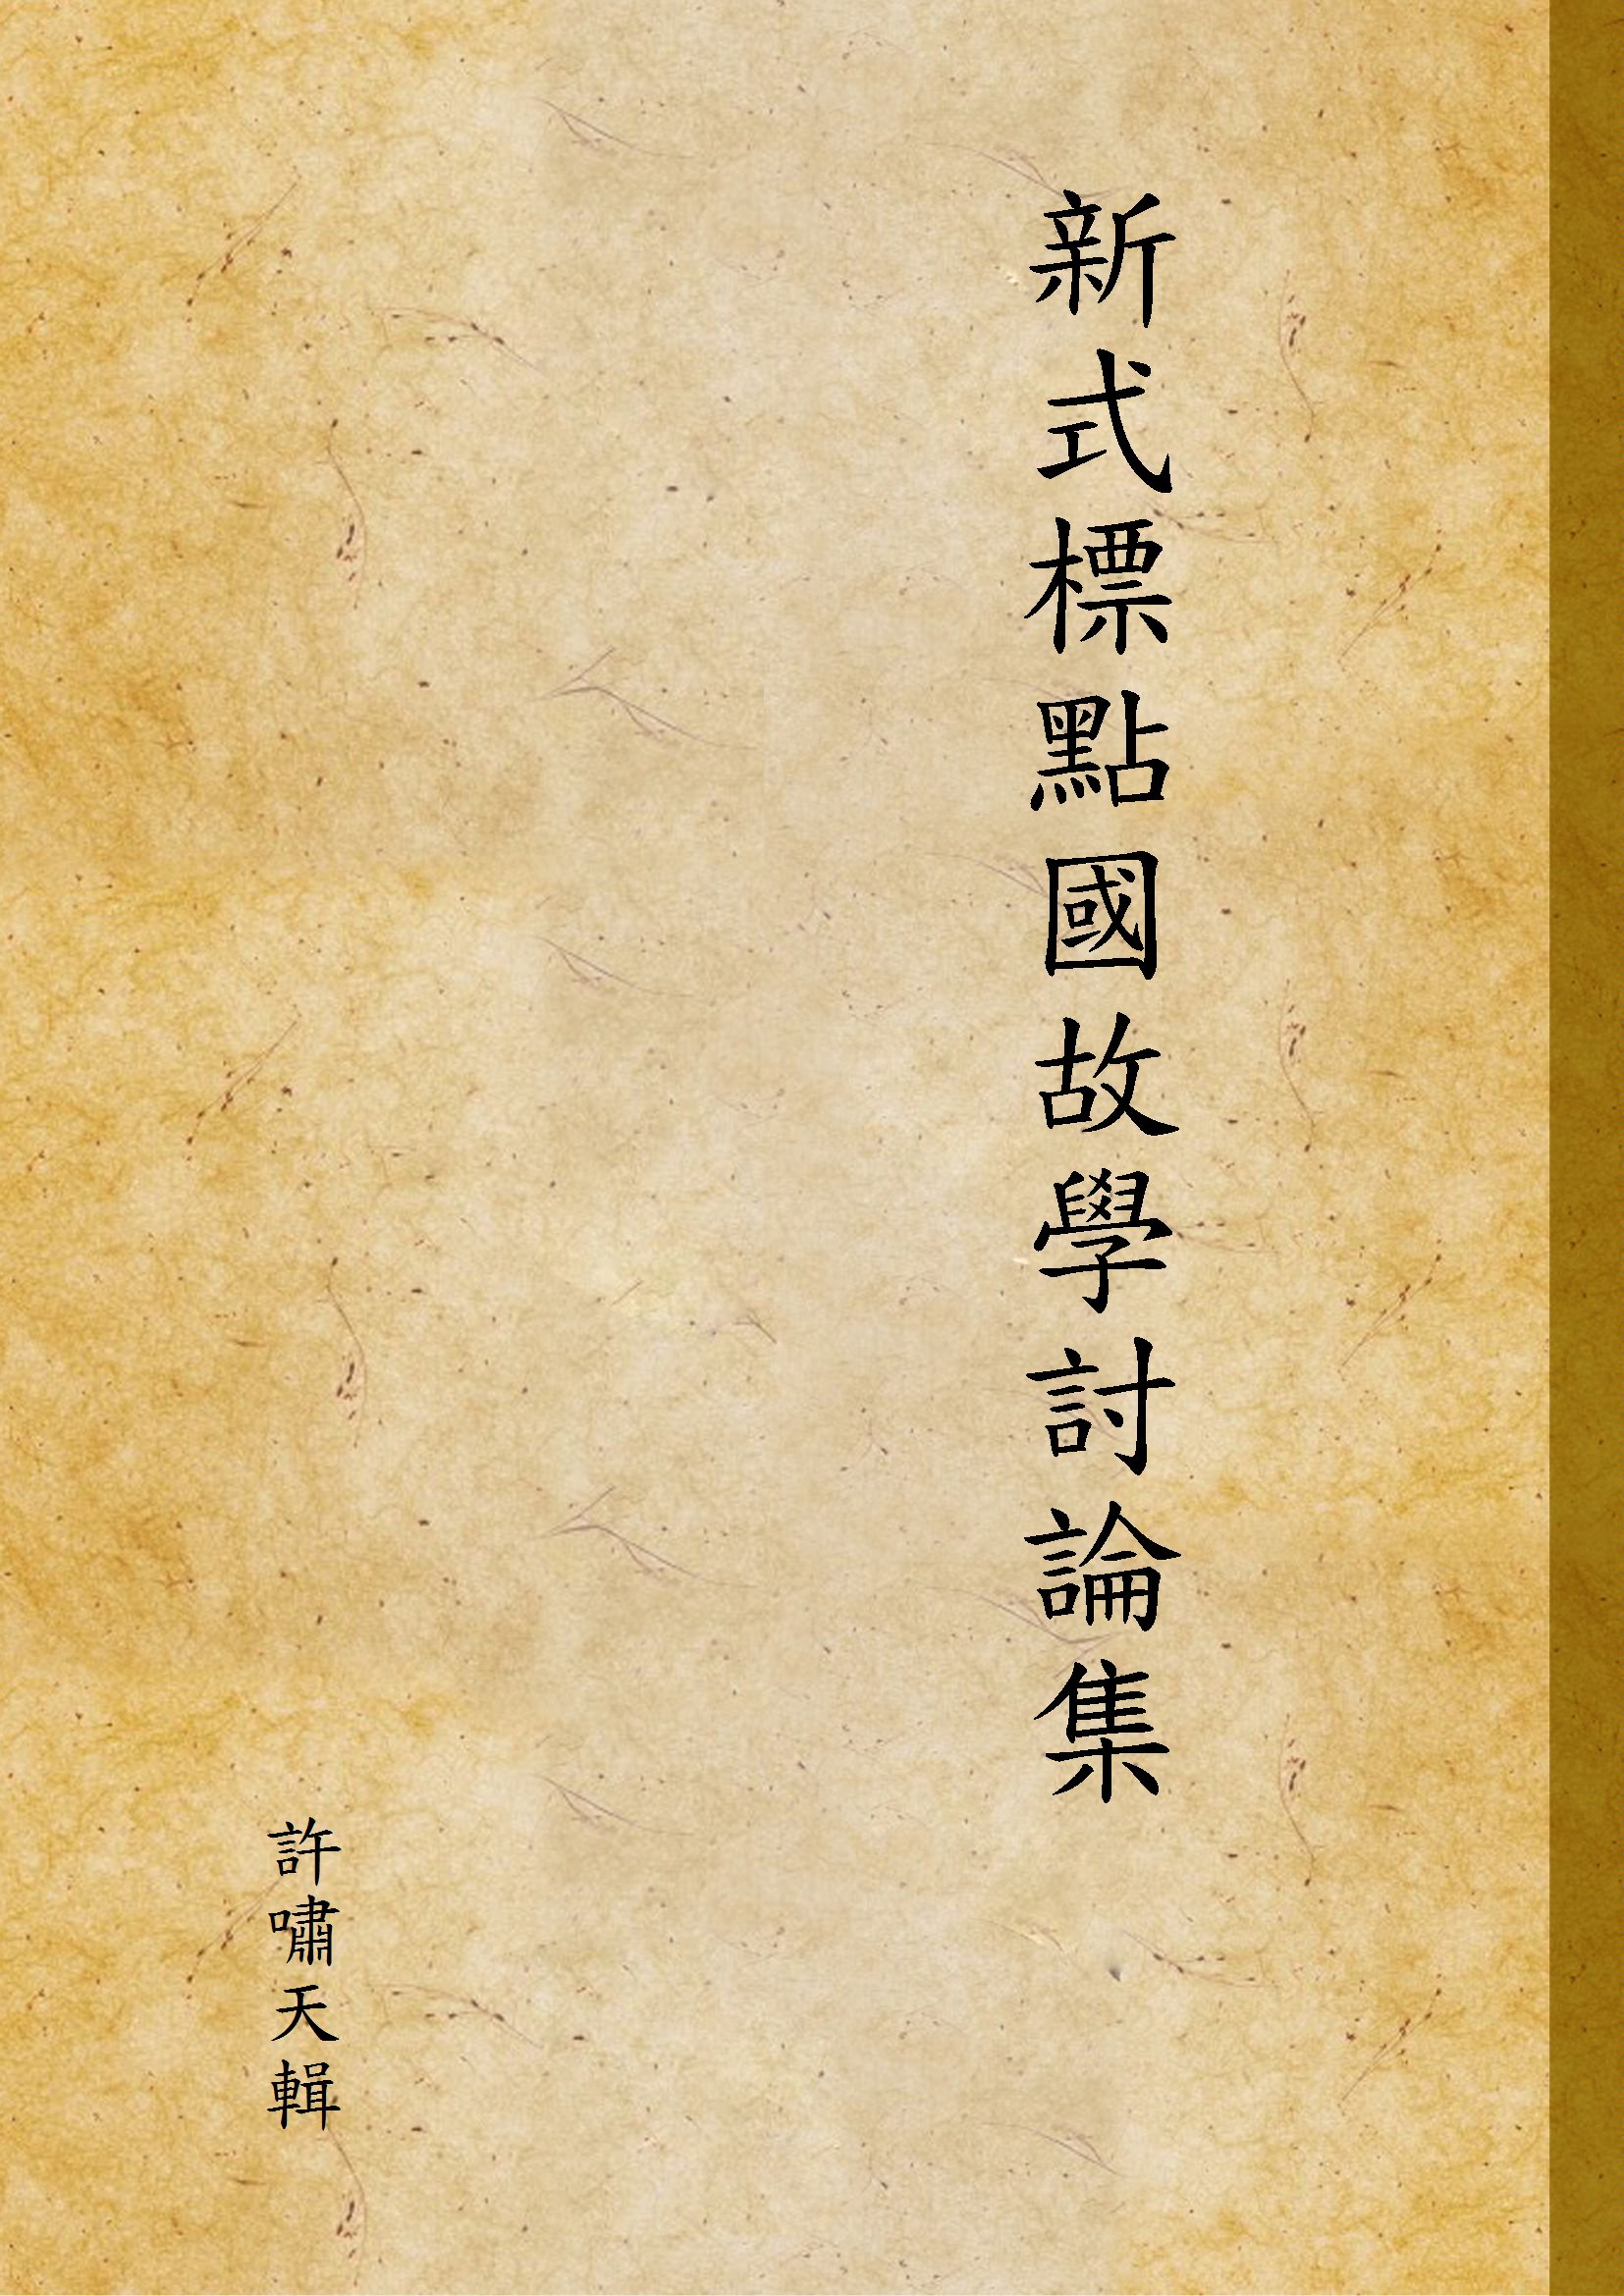 新式標點國故學討論集
許嘯天輯